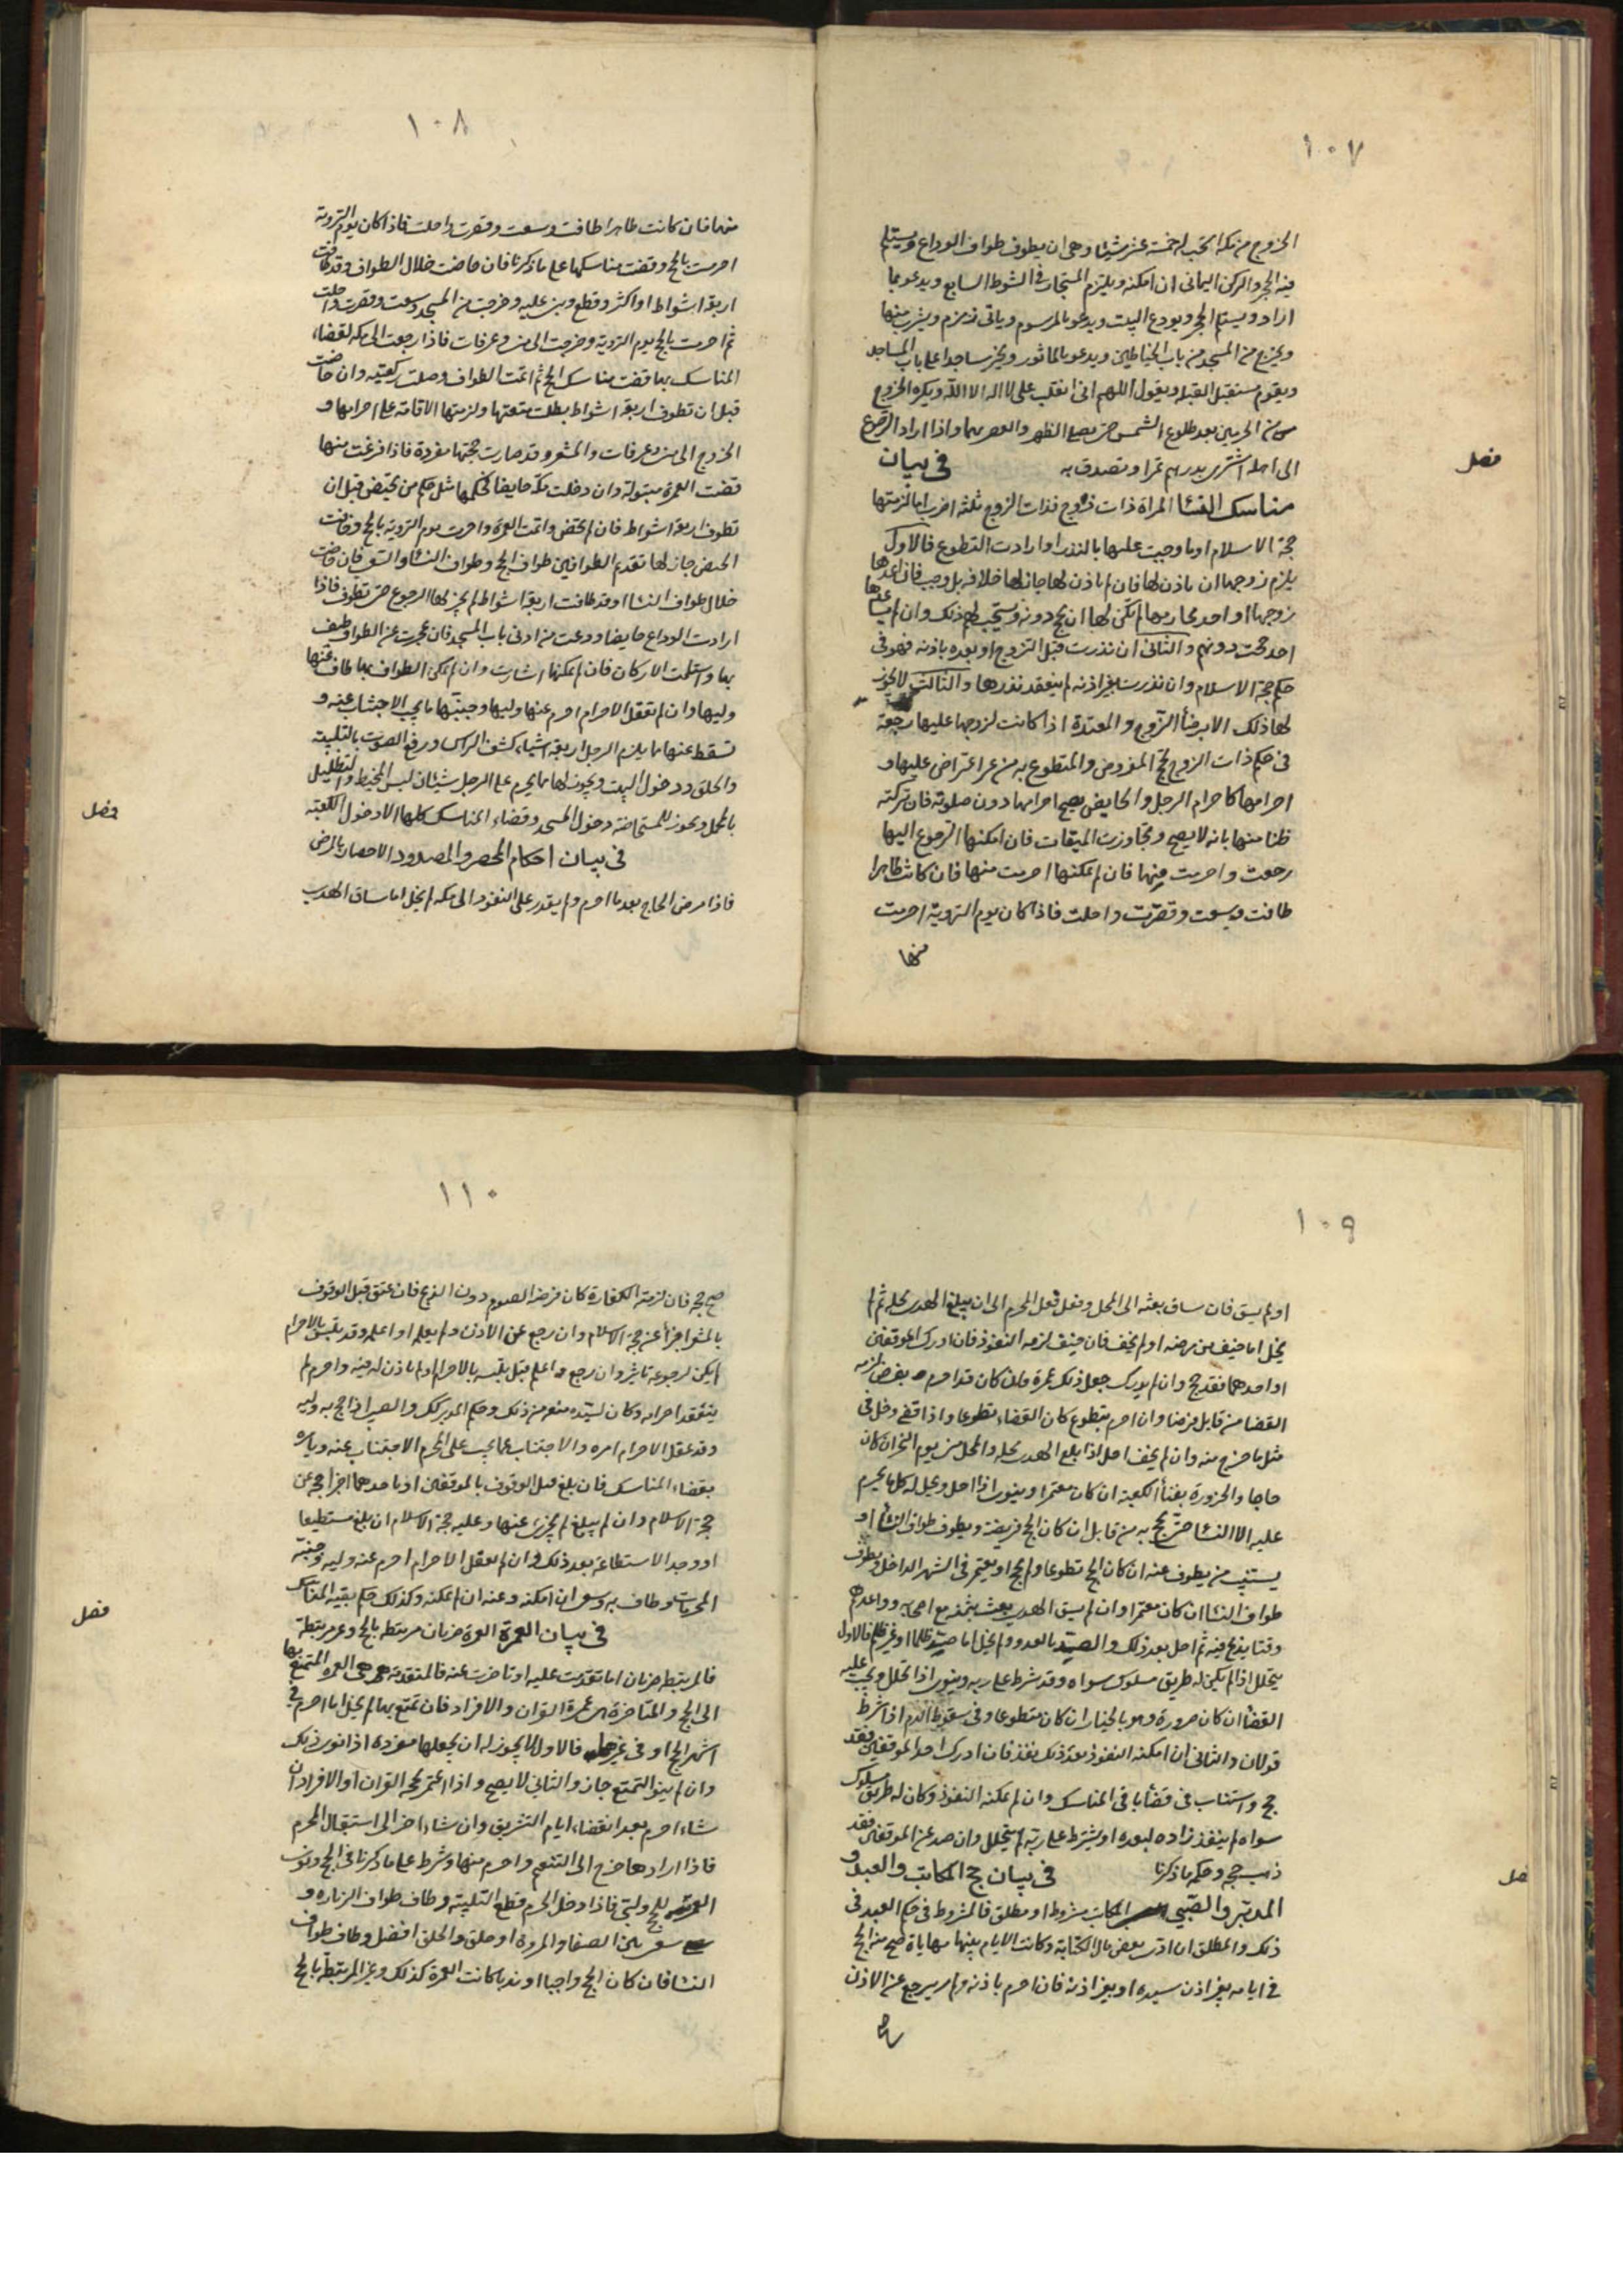 ١٠٧
الخروج من مكة استحب له خمسة عشر شيئا وهى ان يطوف طواف الوداع ويستلم
فيه الحجر والركن اليمانى ان امكنه ويلتزم المستجار فى الشوط السابع ويدعو بما
اراد ويستلم الحجر ويودع البيت ويدعو بالمرسوم وياتى زمزم ويشرب منها
ويخرج من المسجد من باب الحناطين ويدعو بالماثور ويخر ساجدا على باب المساجد
ويقوم مستقبل القبلة ويقول اللهم انى انقلب على لا اله الا الله ويكره الخروج
من الحرمين بعد طلوع الشمس حتى يصلى الظهر والعصر بهما واذا اراد الرجوع
الى اهله اشترى بدرهم تمرا وتصدق به فى بيان
فصل
مناسك النسا المراة ذات زوج فذات الزوج ثلثة اضرب اما لزمتها
حجة الاسلام او ما وجبت عليها بالنذر او ارادت التطوع فالاول
يلزم زوجها ان ياذن لها فان لم ياذن لها جاز لها خلافه بل وجب فان ساعدها
زوجها او احد محارمها لم يكن لها ان تحج دونه ويستحب لهم ذلك وان لم يساعدها
احد حجت دونهم والثانى ان نذرت قبل التزوج او بعده باذنه فهو فى
حكم حجة الاسلام وان نذرت بغير اذنه لم ينعقد نذرها والثالث لا يجوز
لها ذلك الا برضا الزوج والمعتدة اذا كانت لزوجها عليها رجعة
فى حكم ذات الزوج تحج المفروض والمتطوع به من غير اعتراض عليها و
احرامها كاحرام الرجل والحايض يصح احرامها دون صلوته فان تركته
ظنا منها بانه لا يصح وتجاوزت الميقات فان امكنها الرجوع اليها
رجعت واحرمت منها فان لم يمكنها احرمت منها فان كانت طاهرا
طافت وسعت وقصرت واحلت فاذا كان يوم التروية احرمت
منها
١٠٨
منها فان كانت طاهرا طافت وسعت وقصرت واحلت فاذا كان يوم التروية
احرمت بالحج وقضت مناسكها على ما ذكرنا فان حاضت خلال الطواف وقد طافت
اربعة اشواط او اكثر وقطع وبنى عليه وخرجت من المسجد وسعت وقصرت واحلت
ثم احرمت بالحج يوم التروية وخرجت الى منى وعرفات فاذا رجعت الى مكة لقضاء
المناسك بها قضت مناسك الحج ثم اتمت الطواف وصلت ركعتيه وان حاضت
قبل ان تطوف اربعة اشواط بطلت متعتها ولزمتها الاقامة على احرامها و
الخروج الى منى وعرفات والمشعر وقد صارت حجتها مفردة فاذا فرغت منها
قضت العمرة مبتولة وان دخلت مكة حايضا فحكمها مثل حكم من تحيض قبل ان
تطوف اربعة اشواط فان لم تحض واتمت العمرة واحرمت يوم التروية بالحج وخافت
الحيض جاز لها تقديم الطوافين طواف الحج وطواف النسا والسعى فان حاضت
خلال طواف النسا وقد طافت اربعة اشواط لم يجز لها الرجوع حتى تطوف فاذا
ارادت الوداع حايضا ودعت من ادنى باب المسجد فان عجزت عن الطواف طيف
بها واستلمت الاركان فان لم يمكنها اشارت وان لم يمكن الطواف بها طاف عنها
وليها وان لم تعقل الاحرام احرم عنها وليها وجنبها ما يجب الاجتناب عنه و
تسقط عنها مما يلزم الرجل اربعة اشياء كشف الراس ورفع الصوت بالتلبية
والحلق ودخول البيت ويجوز لها مما يحرم على الرجل شيئان لبس المخيط والتظليل
بالمحمل ويجوز للمستحاضة دخول المسجد وقضاء المناسك كلها الا دخول الكعبة
فصل
فى بيان احكام المحصر والمصدود الاحصار بالمرض
فاذا مرض الحاج بعد ما احرم ولم يقدر على النفوذ الى مكة لم يخل اما ساق الهدى
١٠٩
او لم يسق فان ساق بعثه الى المحل وفعل فعل المحرم الى ان يبلغ الهدى محله ثم لم
يخل اما خفف من مرضه او لم يخف فان خفف لزمه النفوذ فان ادرك الموقفين
او احدهما فقد حج وان لم يدرك جعل ذلك عمرة فان كان قد احرم بفرض لزمه
القضا من قابل فرضا وان احرم بتطوع كان القضاء تطوعا واذا قضى دخل فى
مثل ما خرج منه وان لم يخف احل اذا بلغ الهدى محله والمحل منى يوم النحر ان كان
حاجا والحزورة بفناء الكعبة ان كان معتمرا وينوى اذا احل ويحل له كل ما يحرم
عليه الا النسا حتى يحج به من قابل ان كان الحج فريضة ويطوف طواف النسا او
يستنيب من يطوف عنه ان كان الحج تطوعا ولم يحج او يعتمر فى الشهر الداخل ويطوف
طواف النسا ان كان معتمرا وان لم يسق الهدى بعث بثمنه مع اصحابه وواعدهم
وقتا يذبح فيه ثم احل بعد ذلك والصيد بالعدو ولم يخل اما صد ظلما او غير ظلم فالاول
يتحلل اذا لم يكن له طريق مسلوك سواه وقد شرط على ربه وينوى اذا تحلل ويجب عليه
القضا ان كان صرورة وهو بالخيار ان كان متطوعا وفى سقوط الدم اذا شرط
قولان والثانى ان امكنه النفوذ بعد ذلك نفذ فان ادرك احد الموقفين فقد
حج واستناب فى قضا باقى المناسك وان لم يمكنه النفوذ وكان له طريق مسلوك
سواه لم ينفذ زاده لبعده او يشترط على ربه لم يتحلل وان صد عن الموقفين فقد
ذهب حجه وحكمه ما ذكرنا فى بيان حج المكاتب والعبد و
فصل
المدبر والصبى المكاتب مشروط او مطلق فالمشروط فى حكم العبد فى
ذلك والمطلق ان ادى بعض مال الكتابة وكانت الايام بينهما مهاياة صح منه الحج
فى ايامه بغير اذن سيده او بغير اذنه فان احرم باذنه ولم يرجع عن الاذن
صح
١١٠
صح حجه فان لزمته الكفارة كان فرضه الصوم دون الذبح فان عتق قبل الوقوف
بالمشعر اجزأ عن حجة الاسلام وان رجع عن الاذن ولم يعلم او اعلم وقد تلبس بالاحرام
لم يكن لرجوعه تاثير وان رجع واعلم قبل تلبسه بالاحرام او لم ياذن له فيه واحرم لم
ينعقد احرامه وكان لسيده منعه من ذلك وحكم المدبر كذلك والصبى اذا حج به وليه
وقد عقل الاحرام امره والاجتناب عما يجب على المحرم الاجتناب عنه ويامره
بقضاء المناسك فان بلغ قبل الوقوف بالموقفين او باحدهما اجزا حجه عن
حجة الاسلام وان لم يبلغ لم يجزئ عنها وعليه حجة الاسلام ان بلغ مستطيعا
او وجد الاستطاعة بعد ذلك وان لم يعقل الاحرام احرم عنه وليه وجنبه
المحرمات وطاف به وسعى ان امكنه وعنه ان لم يمكنه وكذلك حكم بقية المناسك
فصل
فى بيان العمرة العمرة ضربان مرتبطة بالحج وغير مرتبطة
فالمرتبطة ضربان اما تقدمت عليه او تاخرت عنه فالمتقدمة هى العمرة المتمتع بها
الى الحج والمتاخرة هى عمرة القران والافراد فان تمتع بها لم يخل اما احرم فى
اشهر الحج او فى غيرها فالاول لا يجوز له ان يجعلها مفردة اذا نوى ذلك
وان لم ينو التمتع جاز والثانى لا يصح واذا اعتمر لحجة القران او الافراد ان
شاء احرم بعد انقضاء ايام التشريق وان شاء اخر الى استقبال المحرم
فاذا ارادها خرج الى التنعيم واحرم منها وشرط على ما ذكرنا فى الحج ونوى
العمرة للحج ولبى فاذا دخل الحرم قطع التلبية وطاف طواف الزيارة و
سعى بين الصفا والمروة او حلق والحلق افضل وطاف طواف
النسا فان كان الحج واجبا او ندبا كانت العمرة كذلك وغير المرتبطة بالحج